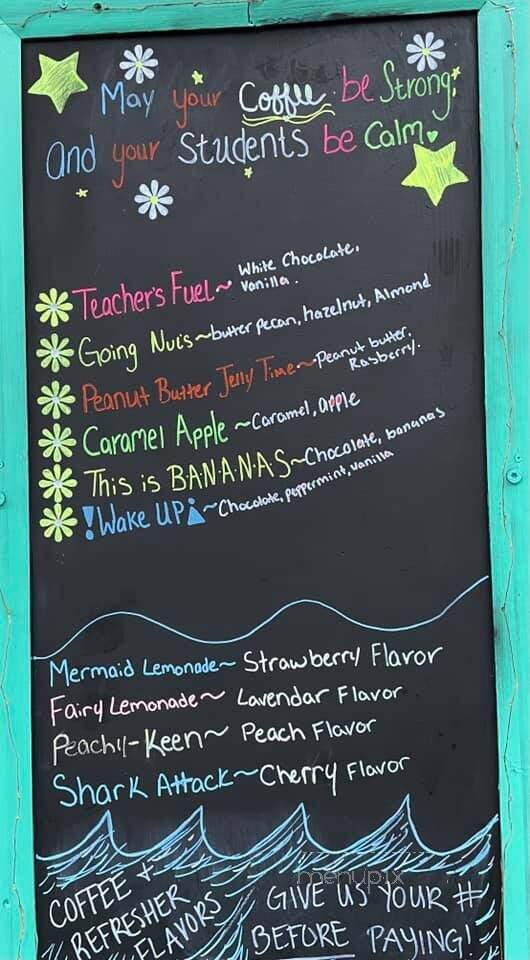 May your Coffee be Strong,
and your Students be Calm
Teacher's Fuel~ White Chocolate,
Vanilla.
Going Nuts~butter pecan, hazelnut, Almond
Peanut Butter Jelly Time~Peanut butter,
Rasberry.
Caramel Apple ~Caramel, apple
This is B·A·N·A·N·A·S~Chocolate, bananas
!Wake UP ~Chocolate, peppermint, vanilla
Mermaid Lemonade~ Strawberry Flavor
Fairy Lemonade~ Lavendar Flavor
Peachy-Keen~ Peach Flavor
Shark Attack~Cherry Flavor
COFFEE +
REFRESHER
FLAVORS
GIVE US YOUR #
BEFORE PAYING!
menupix